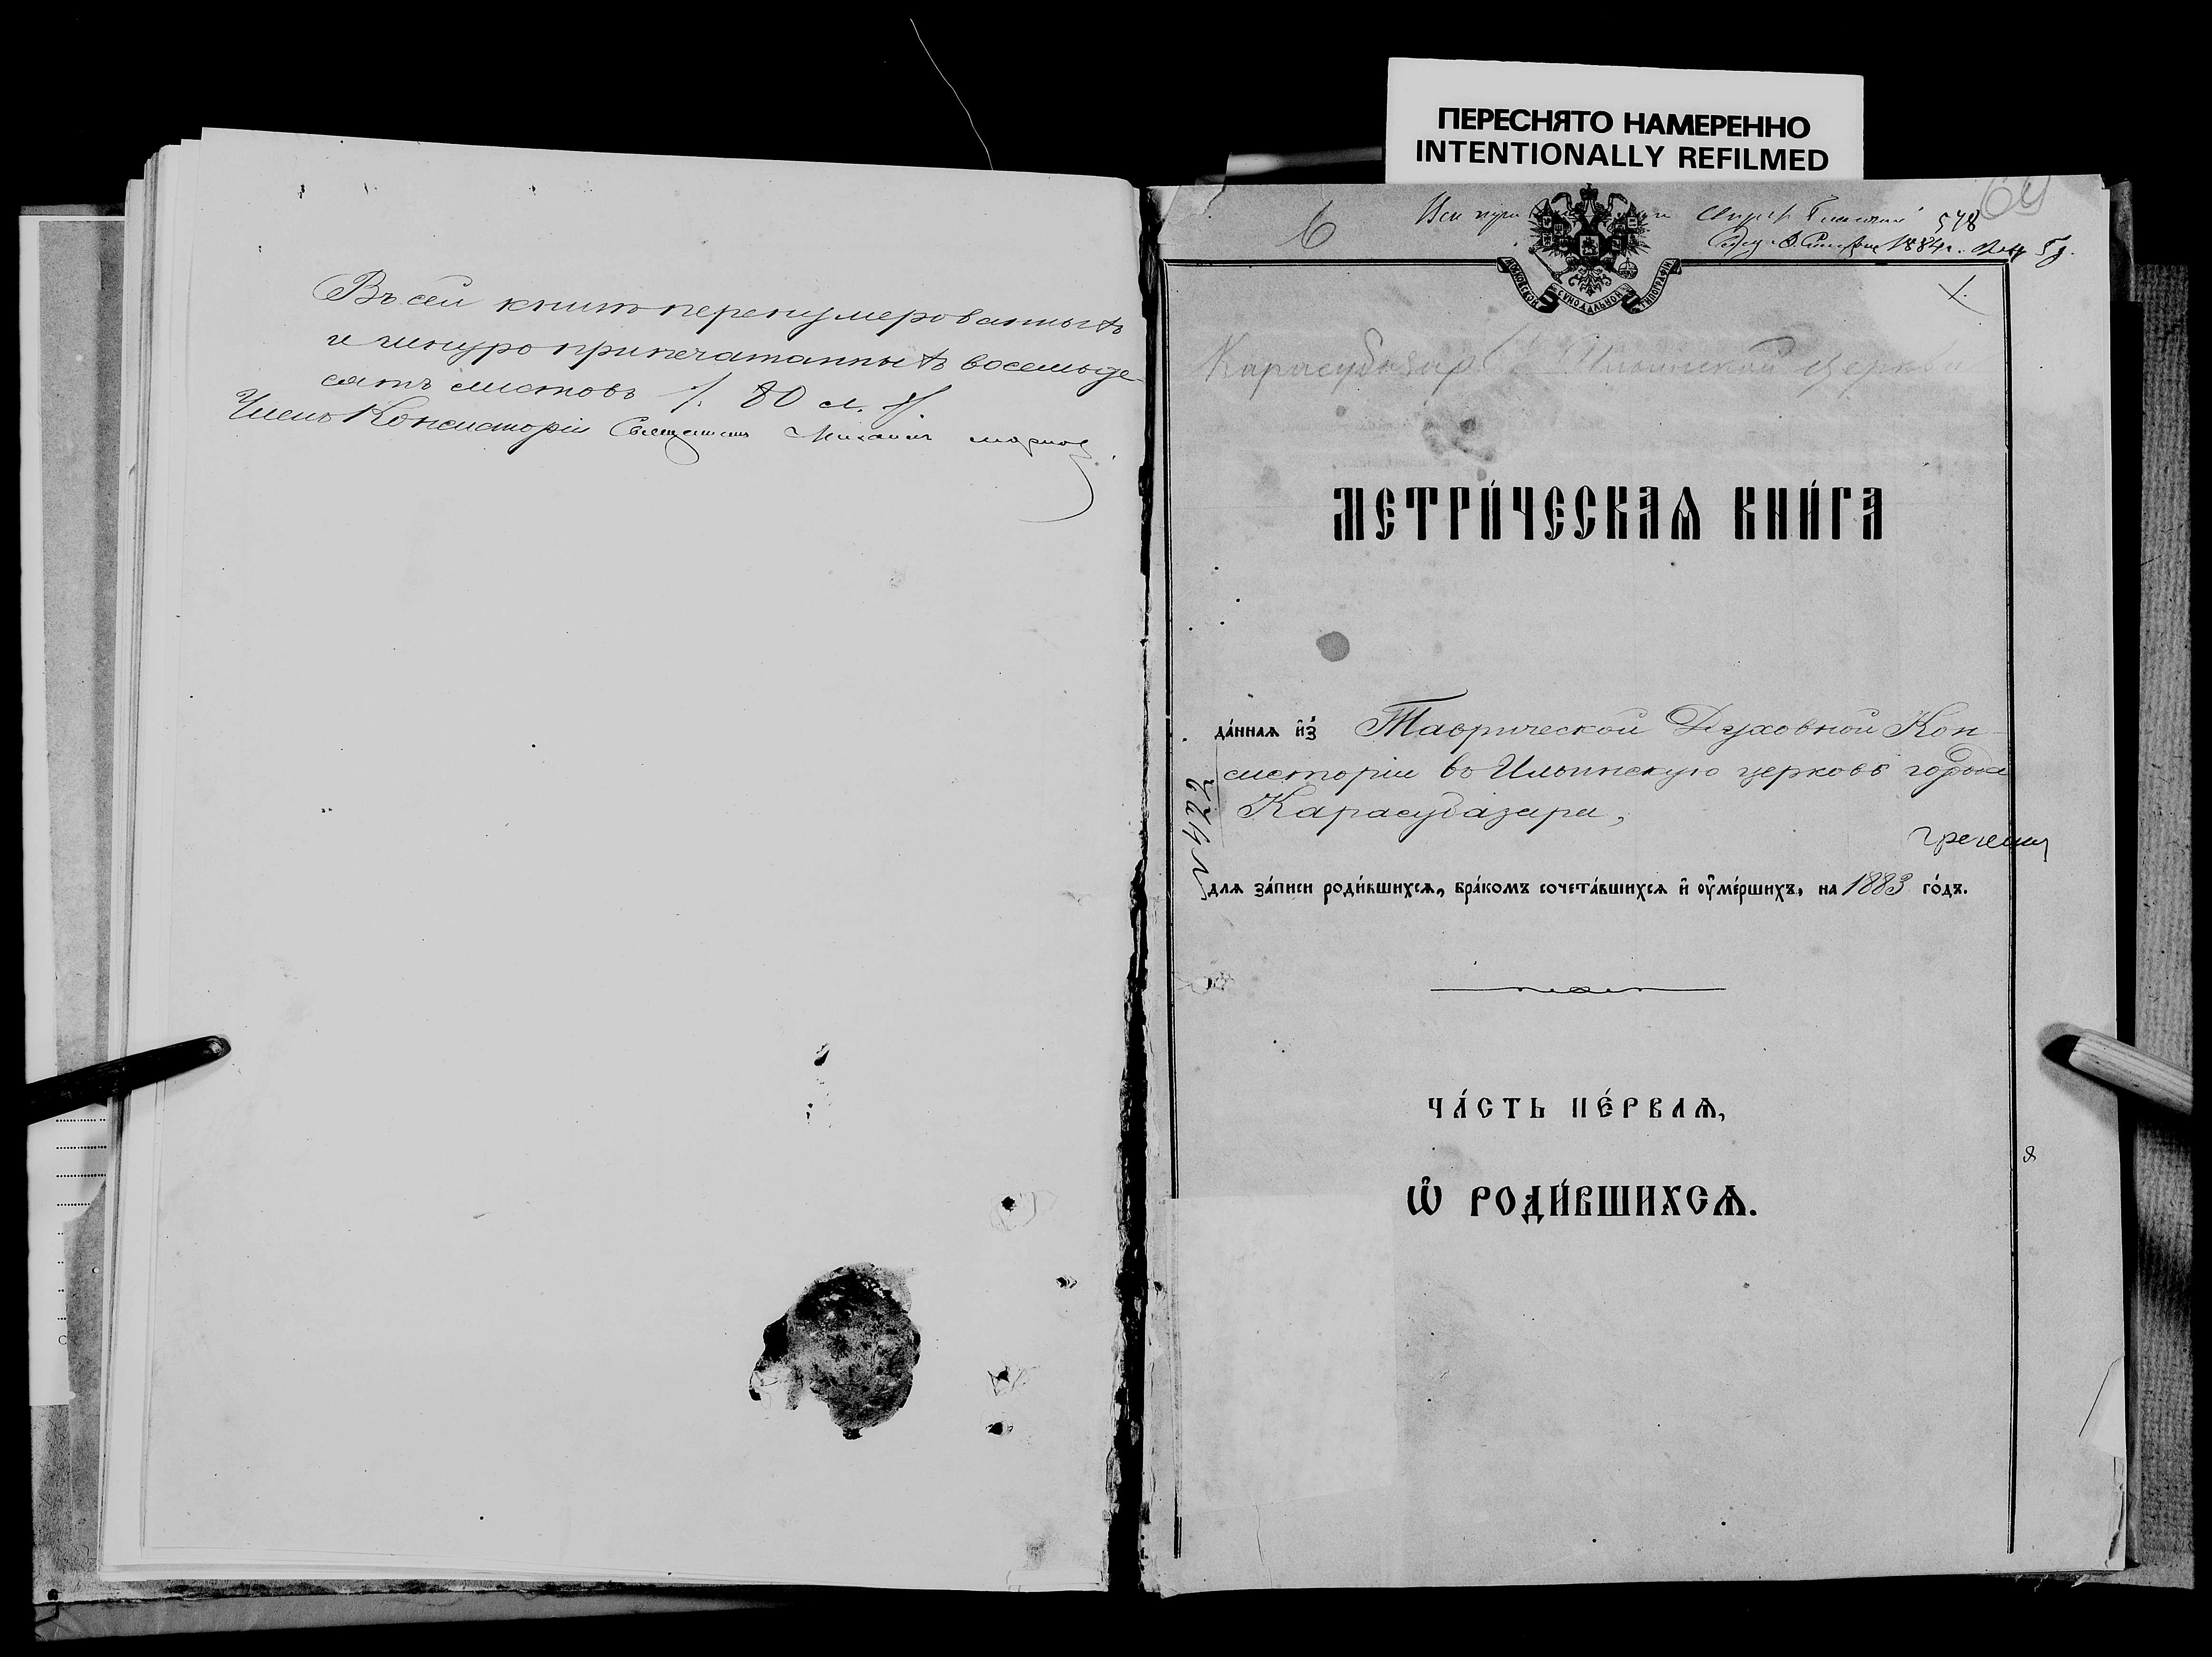 Въ сей книгѣ перенумерованныхъ
и шнуро припечатанныхъ восемьде-
сятъ листовъ /. 80 л. /.
Членъ Консисторіи Священникъ Михаилъ
ПЕРЕСНЯТО НАМЕРЕННО
INTENTIONALLY REFILMED
6
578
1884 г.
МОСКОВСКОЙ СѴНОДАЛЬНОЙ ТИПОГРАФІИ
Карасубазар Ильинской церкви
МЕТРИ́ЧЕСКАѦ КНИ́ГА
да́ннаѧ и҆з̾ Таврической Духовной Кон-
систоріи въ Ильинскую церковь города
Карасубазара,
для за́писи роди́вшихсѧ, бра́комъ сочета́вшихсѧ и҆ ᲂу҆ме́ршихъ, на 1883 го́дъ.
ЧА́СТЬ ПЕ́РВАѦ,
Ѽ РОДИ́ВШИХСѦ.